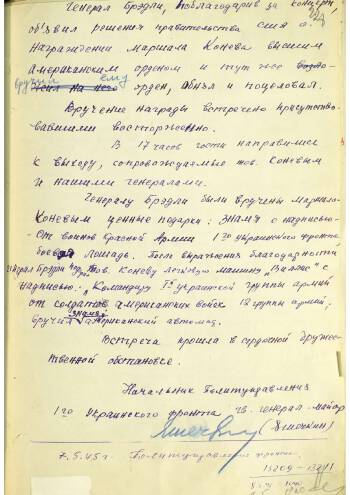 Генерал Брэдли, поблагодарив за концерт,
объявил решения правительства США о
награждении Маршала Конева высшим
Американским орденом и тут же
вручил ему орден, обнял и поцеловал.
Вручение награды встречено присутство-
вавшими восторженно.
В 17 часов гости направились
к выходу, сопровождаемые тов. Коневым
и нашими генералами.
Генералу Брэдли были вручены Маршалом
Коневым ценные подарки: знамя с надписью-
От воинов Красной Армии 1го украинского фронта
боевая лошадь. После выражения благодарности
генерал Брэдли тов. Коневу легковую машину „Виллис" с
надписью: „Командиру 1й украинской группы армий
от солдатов американских войск 12 группы армий",
вручил Американский автомат.
Встреча прошла в сердечной дружес-
твенной обстановке.
Начальник Политуправления
1го Украинского фронта гв. генерал-майор
(Яшечкин)
7.5.45 г. Политуправление фронта